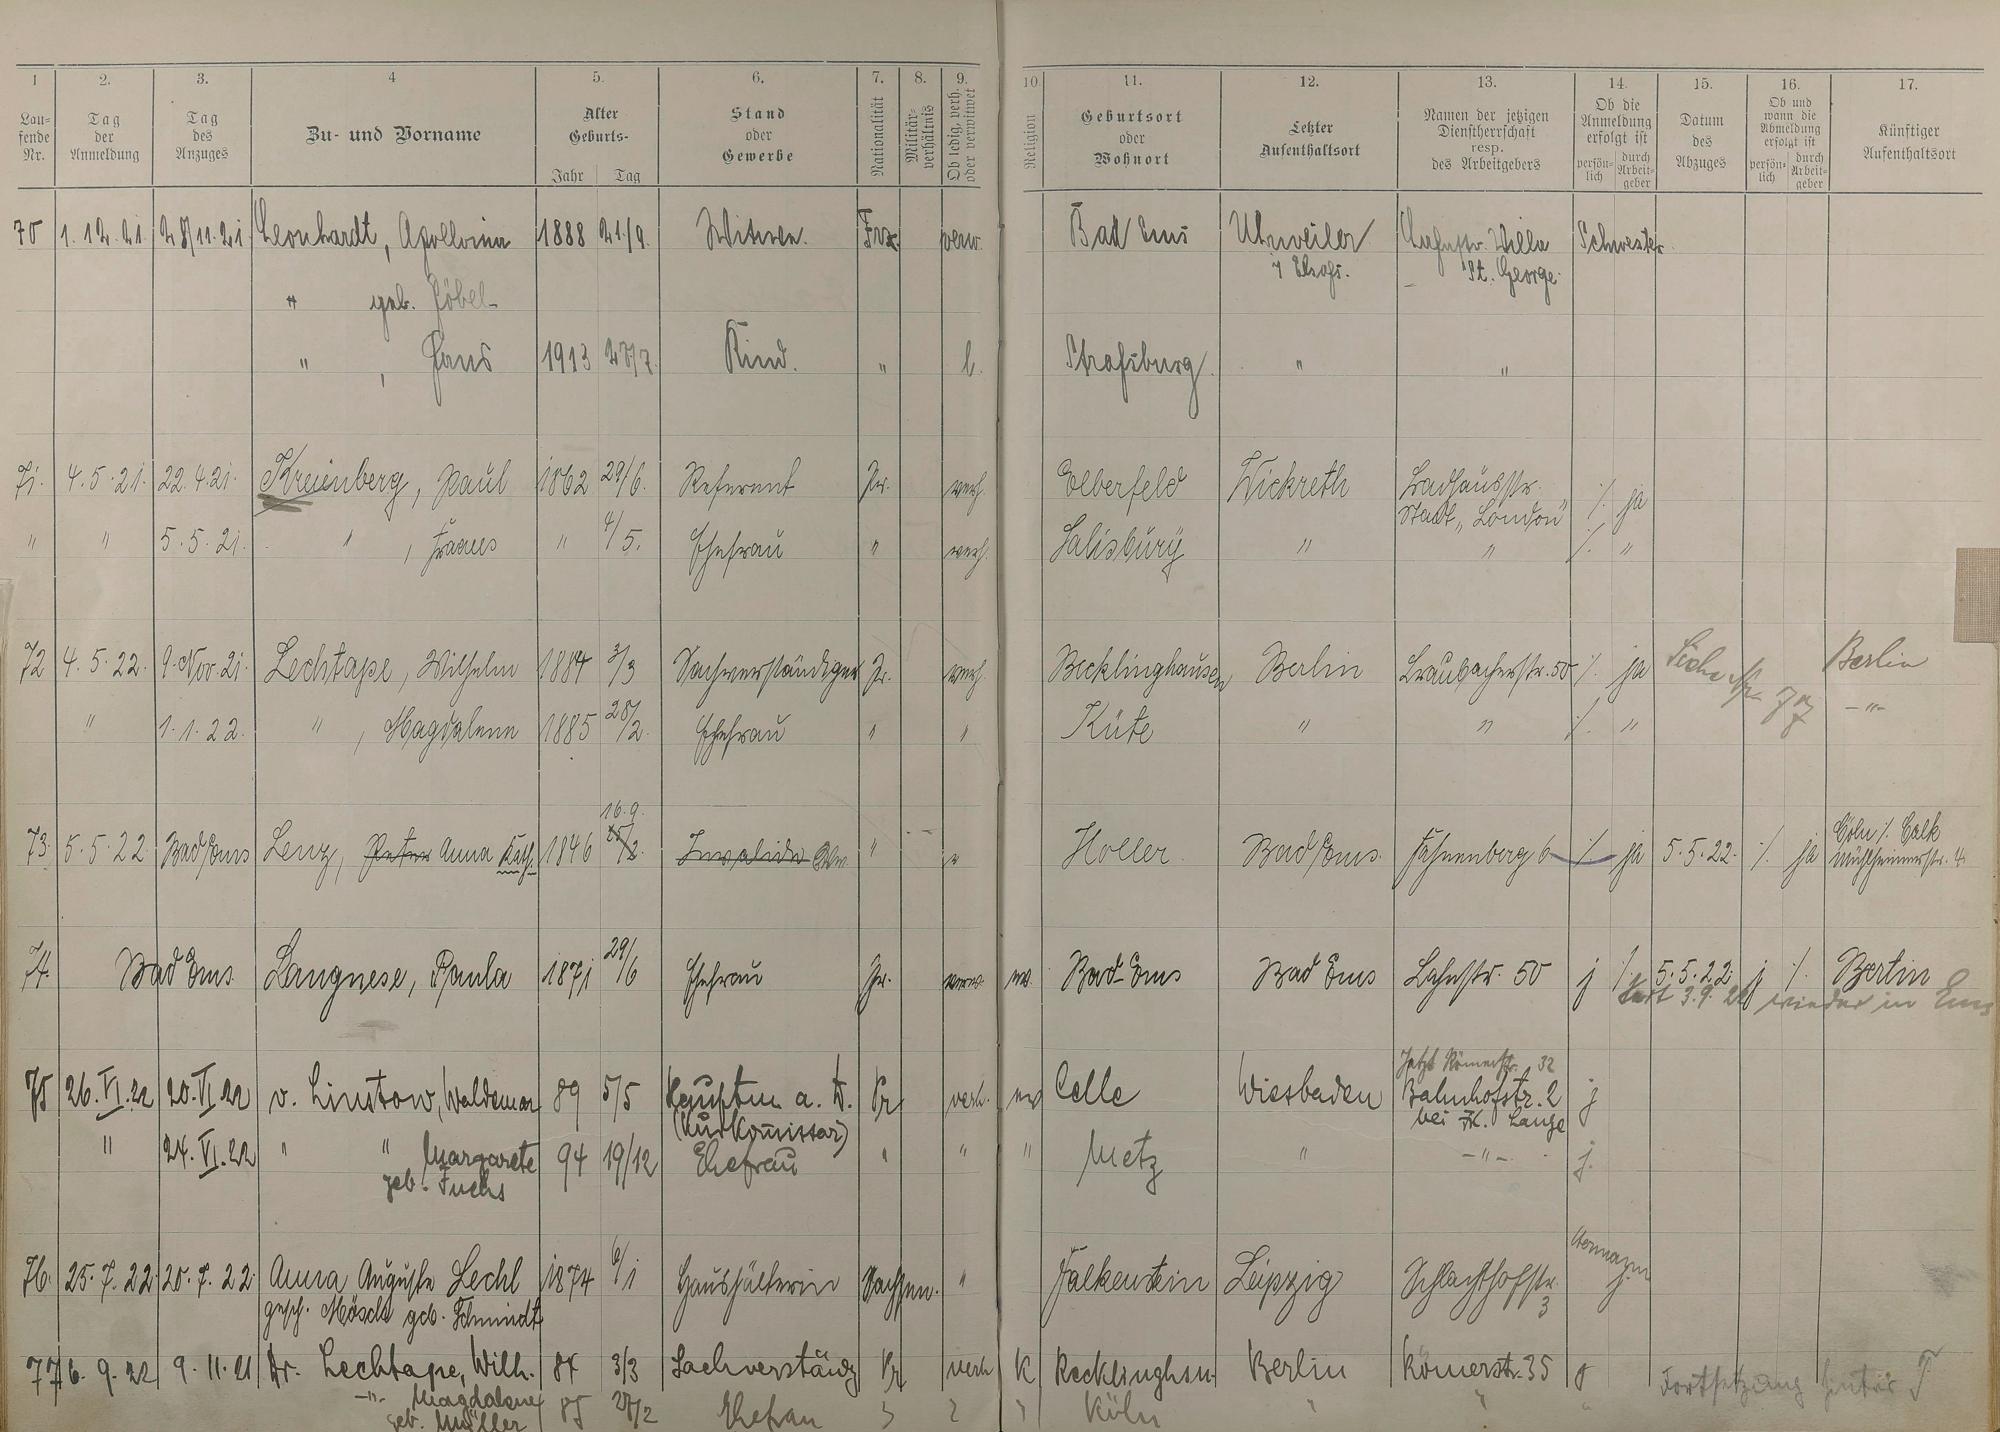 1 2. 3. 4 5. 6. 7. 8. 9. 10 11. 12. 13. 14. 15. 16. 17.
Lau-
fende
Nr.
Tag
der
Anmeldung
Tag
des
Anzuges
Zu- und Vorname
Alter
Geburts-
Jahr Tag
Stand
oder
Gewerbe
Nationalität
Militär-
verhältnis
Ob ledig, verh.
oder verwitwet
Religion
Geburtsort
oder
Wohnort
Letzter
Aufenthaltsort
Namen der jetzigen
Dienstherrschaft
resp.
des Arbeitgebers
Ob die
Anmeldung
erfolgt ist
persön-
lich
durch
Arbeit-
geber
Datum
des
Abzuges
Ob und
wann die
Abmeldung
erfolgt ist
persön-
lich
durch
Arbeit-
geber
Künftiger
Aufenthaltsort
70 1.12.21. 28/11.21. Leonhardt, Apollonia 1888 21./9. Witwe. verw. Bad Ems Uhrweiler Villa Schwester
St. George
" geb. Göbel
" , Hans 1913 28/7. Kind. " l. Straßburg. " "
71. 4.5.21. 22.4.21. Kreienberg, Paul 1862 29/6. Referent Pr. verh. Elberfeld Wickreth ./. ja
Stadt "London"
" " 5.5.21. " , " 4/5. Ehefrau " verh. Salisbury " " ./. "
72 4.5.22. 9.Nov.21. Lechtape, Wilhelm 1884 3/3 Sachverständiger Pr. verh. Recklinghausen Berlin Braubacherstr. 50 ./. ja Siehe Nr. 77 Berlin
" 1.1.22. " , Magdalena 1885 28/2. Ehefrau " " " " ./. " -"-
16.9.
73. 5.5.22 Bad Ems Lenz, Peter Anna Kath. 1846 25/2. Invalide " " Holler Bad Ems. Fahnenberg 6 ./. ja 5.5.22. ./. ja Cöln ./. Calk
Mühlheimerstr. 4.
74. Bad Ems. Langnese, Paula 1871 29/6 Ehefrau Pr. verw. ev. Bad-Ems Bad Ems Lahnstr. 50 j ./. 5.5.22. j ./. Berlin
3.9.22 wieder in Ems
Jetzt Römerstr. 32
75 26.VI.22 20.VI.22 v. Linstow, Waldemar 89 5/5 Hauptm a. D. Pr verh. ev Celle Wiesbaden Bahnhofstr. 2 j
(Kurkommissar) bei Fr. Lange
" 24.VI.22 " " Margarete 94 19/12 Ehefrau " " " Metz " -"- j.
geb. Fuchs
76. 25.7.22. 20.7.22. Anna Auguste Lechl 1874 6/1 Haushälterin Sachsen. " Falkenstein Leipzig Schlachthofstr.
3
gesch. Mösch geb. Schmidt
77 6.9.22 9.11.21 Dr. Lechtape, Wilh. 84 3/3 Sachverständ Pr verh K Recklinghsn. Berlin Römerstr. 35 Fortsetzung hinter T
-"- Magdalene 85 28/2 Ehefrau " " " Köln " " "
geb. Müller